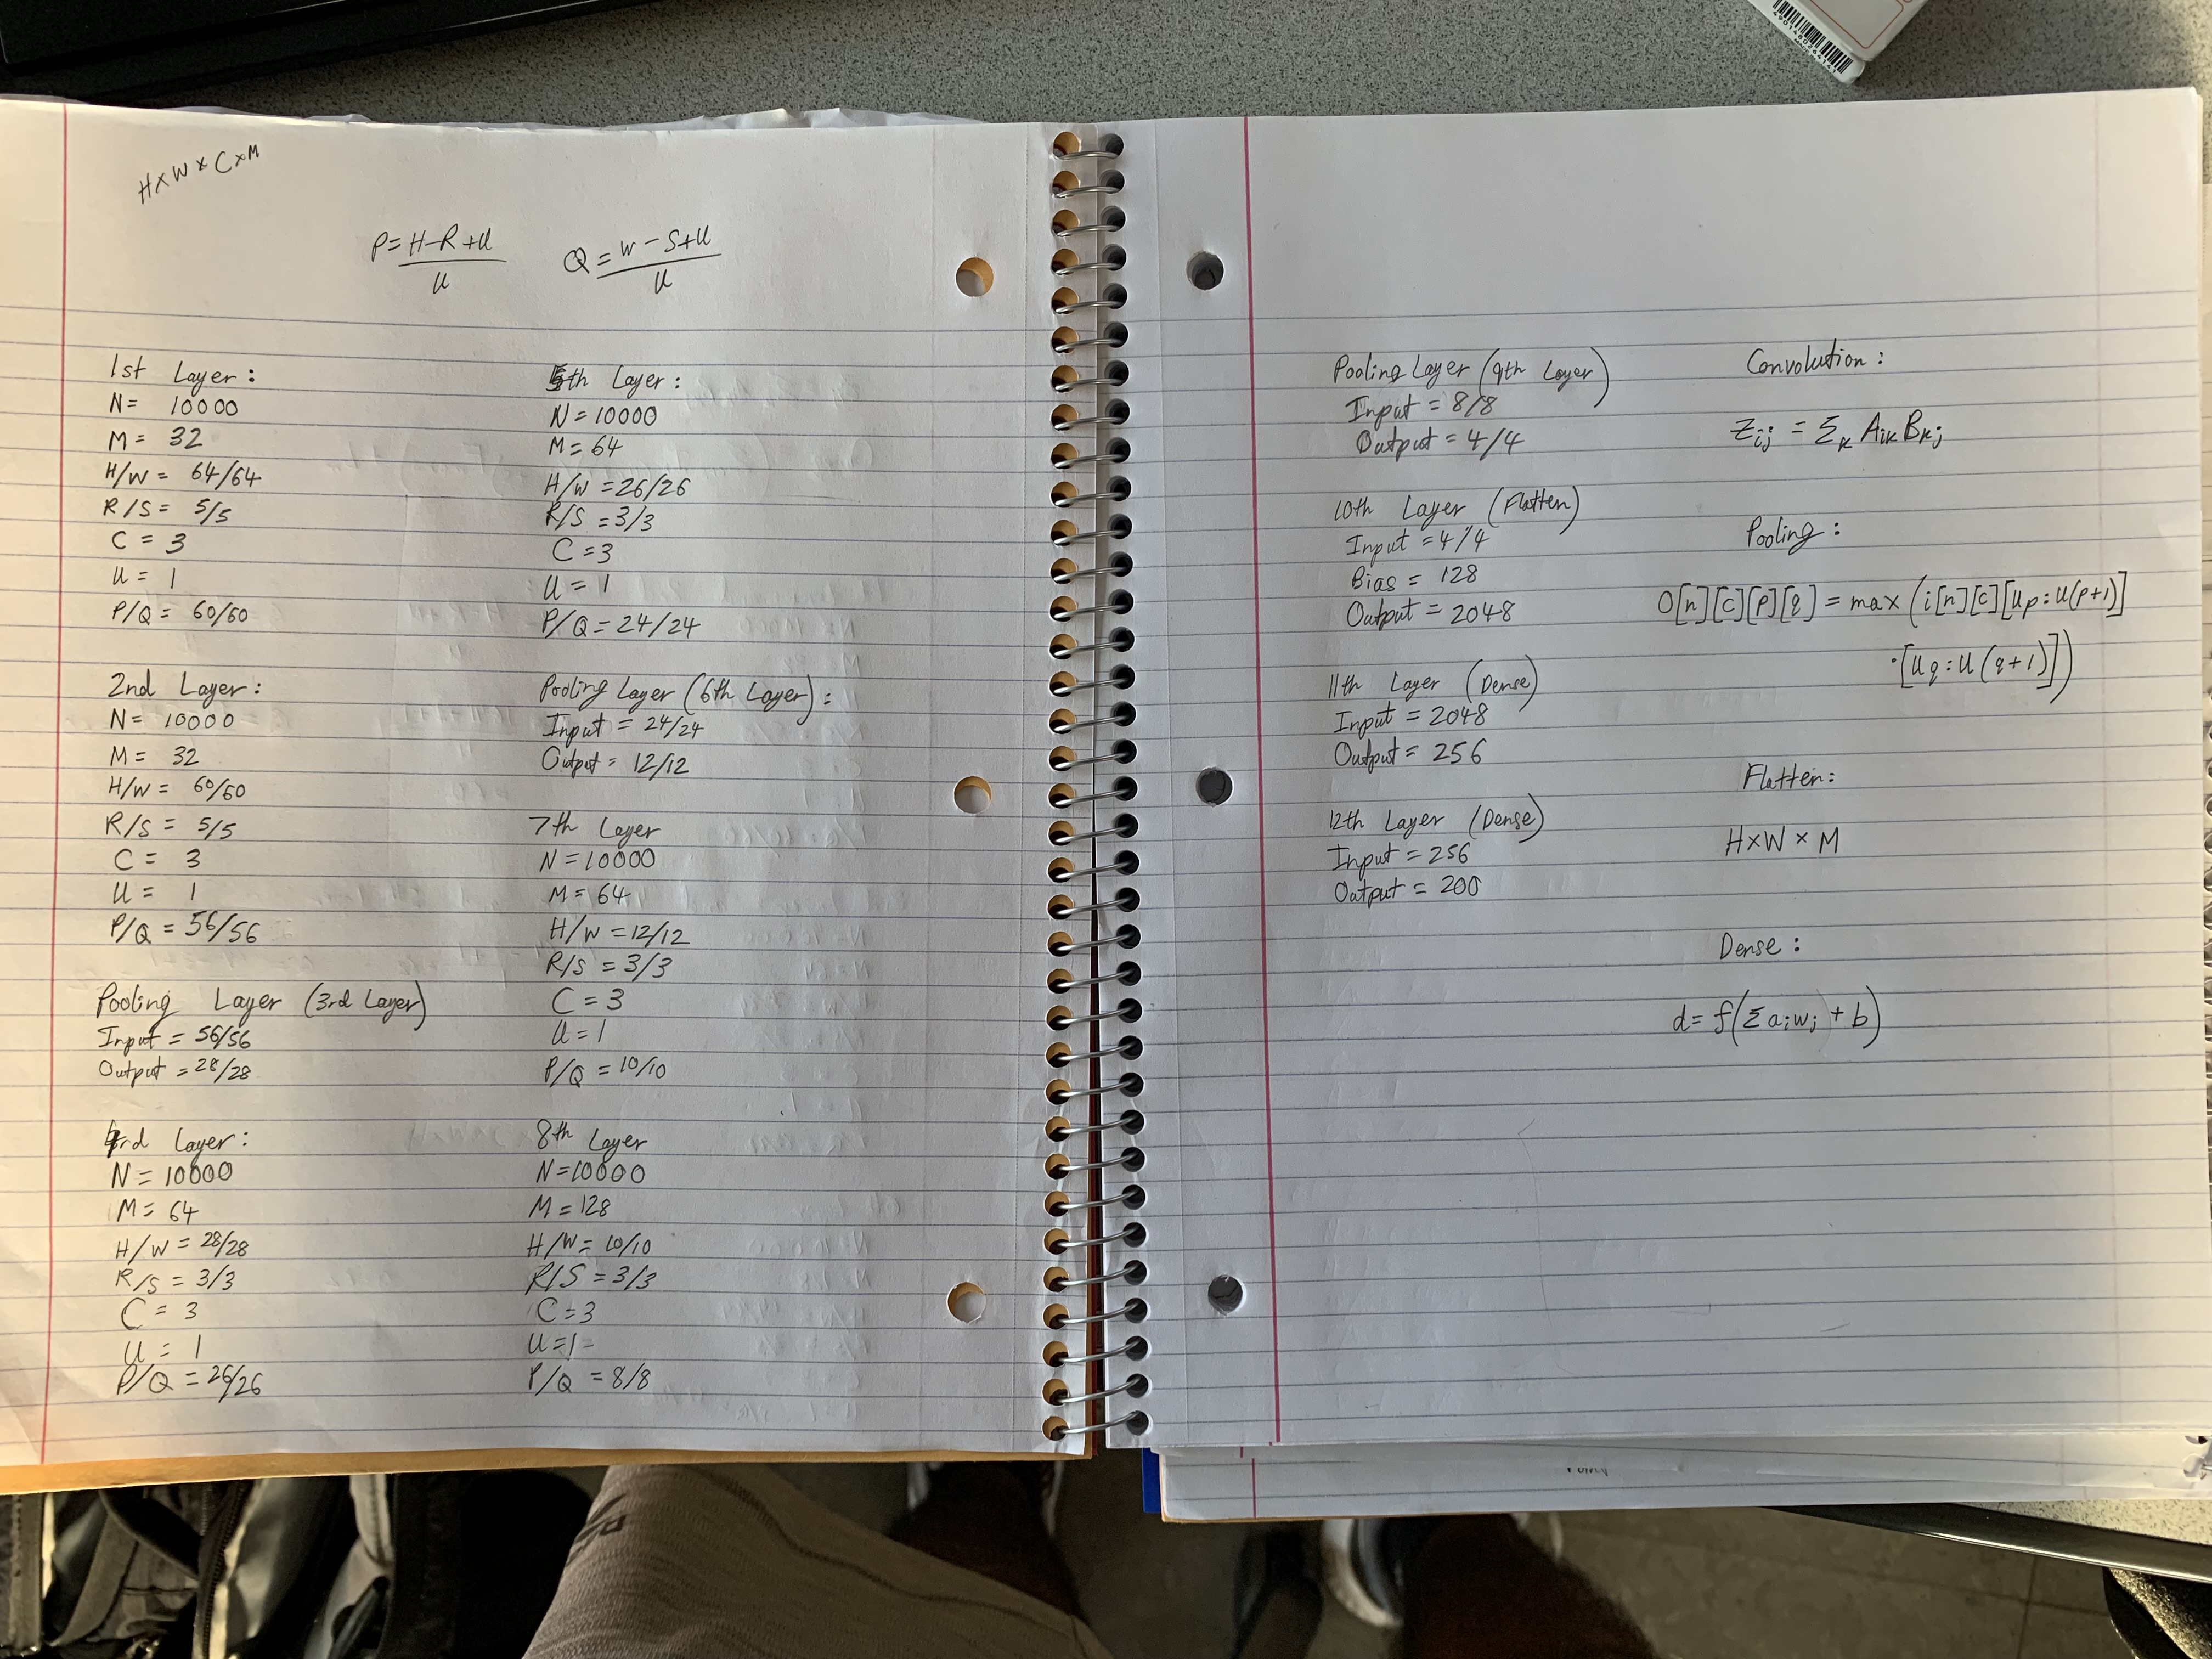 H×W×C×M
P = H-R+U
U
Q = W-S+U
U
1st Layer:
N = 10000
M = 32
H/W = 64/64
R/S = 5/5
C = 3
U = 1
P/Q = 60/60
2nd Layer:
N = 10000
M = 32
H/W = 60/60
R/S = 5/5
C = 3
U = 1
P/Q = 56/56
Pooling Layer (3rd Layer)
Input = 56/56
Output = 28/28
4rd Layer:
N = 10000
M = 64
H/W = 28/28
R/S = 3/3
C = 3
U = 1
P/Q = 26/26
5th Layer:
N = 10000
M = 64
H/W = 26/26
R/S = 3/3
C = 3
U = 1
P/Q = 24/24
Pooling Layer (6th Layer):
Input = 24/24
Output = 12/12
7th Layer
N = 10000
M = 64
H/W = 12/12
R/S = 3/3
C = 3
U = 1
P/Q = 10/10
8th Layer
N = 10000
M = 128
H/W = 10/10
R/S = 3/3
C = 3
U = 1
P/Q = 8/8
Pooling Layer (9th Layer)
Input = 8/8
Output = 4/4
10th Layer (Flatten)
Input = 4/4
Bias = 128
Output = 2048
11th Layer (Dense)
Input = 2048
Output = 256
12th Layer (Dense)
Input = 256
Output = 200
Convolution:
Zij = Σk Aik Bkj
Pooling:
O[n][c][p][q] = max (i[n][c][Up:U(p+1)]
·[Uq:U(q+1)])
Flatten:
H×W×M
Dense:
d = f(Σaiwi + b)